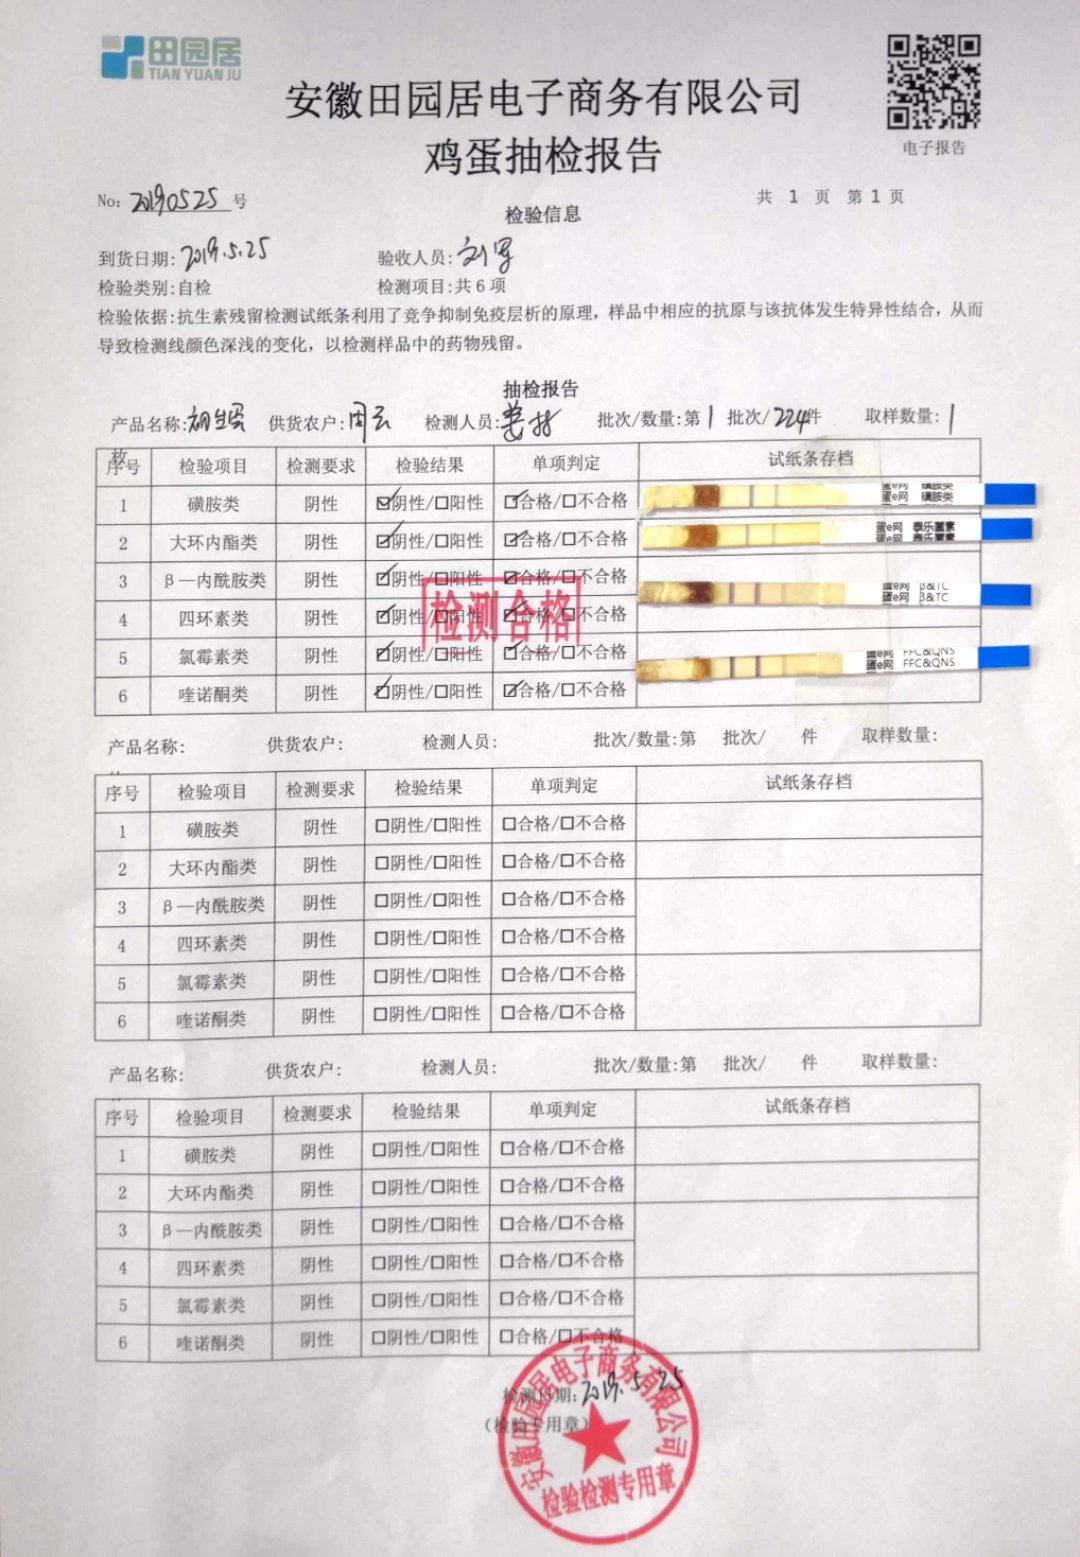 田园居
TIAN YUAN JU
安徽田园居电子商务有限公司
鸡蛋抽检报告
电子报告
No: 20190525 号
共 1 页 第 1 页
检验信息
到货日期: 2019.5.25 验收人员: 刘军
检验类别:自检 检测项目:共 6 项
检验依据:抗生素残留检测试纸条利用了竞争抑制免疫层析的原理，样品中相应的抗原与该抗体发生特异性结合，从而
导致检测线颜色深浅的变化，以检测样品中的药物残留。
抽检报告
产品名称: 供货农户:周云 检测人员: 批次/数量:第 1 批次/224件 取样数量: 1
枚
序号 检验项目 检测要求 检验结果 单项判定 试纸条存档
1 磺胺类 阴性 ☑阴性/□阳性 ☑合格/□不合格 蛋e网 磺胺类
2 大环内酯类 阴性 ☑阴性/□阳性 ☑合格/□不合格 蛋e网 泰乐菌素
3 β—内酰胺类 阴性 ☑阴性/□阳性 ☑合格/□不合格 蛋e网 β&TC
4 四环素类 阴性 ☑阴性/□阳性 ☑合格/□不合格
检测合格
5 氯霉素类 阴性 ☑阴性/□阳性 ☑合格/□不合格 蛋e网 FFC&QNS
6 喹诺酮类 阴性 ☑阴性/□阳性 ☑合格/□不合格
产品名称: 供货农户: 检测人员: 批次/数量:第 批次/ 件 取样数量:
序号 检验项目 检测要求 检验结果 单项判定 试纸条存档
1 磺胺类 阴性 □阴性/□阳性 □合格/□不合格
2 大环内酯类 阴性 □阴性/□阳性 □合格/□不合格
3 β—内酰胺类 阴性 □阴性/□阳性 □合格/□不合格
4 四环素类 阴性 □阴性/□阳性 □合格/□不合格
5 氯霉素类 阴性 □阴性/□阳性 □合格/□不合格
6 喹诺酮类 阴性 □阴性/□阳性 □合格/□不合格
产品名称: 供货农户: 检测人员: 批次/数量:第 批次/ 件 取样数量:
序号 检验项目 检测要求 检验结果 单项判定 试纸条存档
1 磺胺类 阴性 □阴性/□阳性 □合格/□不合格
2 大环内酯类 阴性 □阴性/□阳性 □合格/□不合格
3 β—内酰胺类 阴性 □阴性/□阳性 □合格/□不合格
4 四环素类 阴性 □阴性/□阳性 □合格/□不合格
5 氯霉素类 阴性 □阴性/□阳性 □合格/□不合格
6 喹诺酮类 阴性 □阴性/□阳性 □合格/□不合格
检测日期: 2019.5.25
(检验专用章)
安徽田园居电子商务有限公司
检验检测专用章